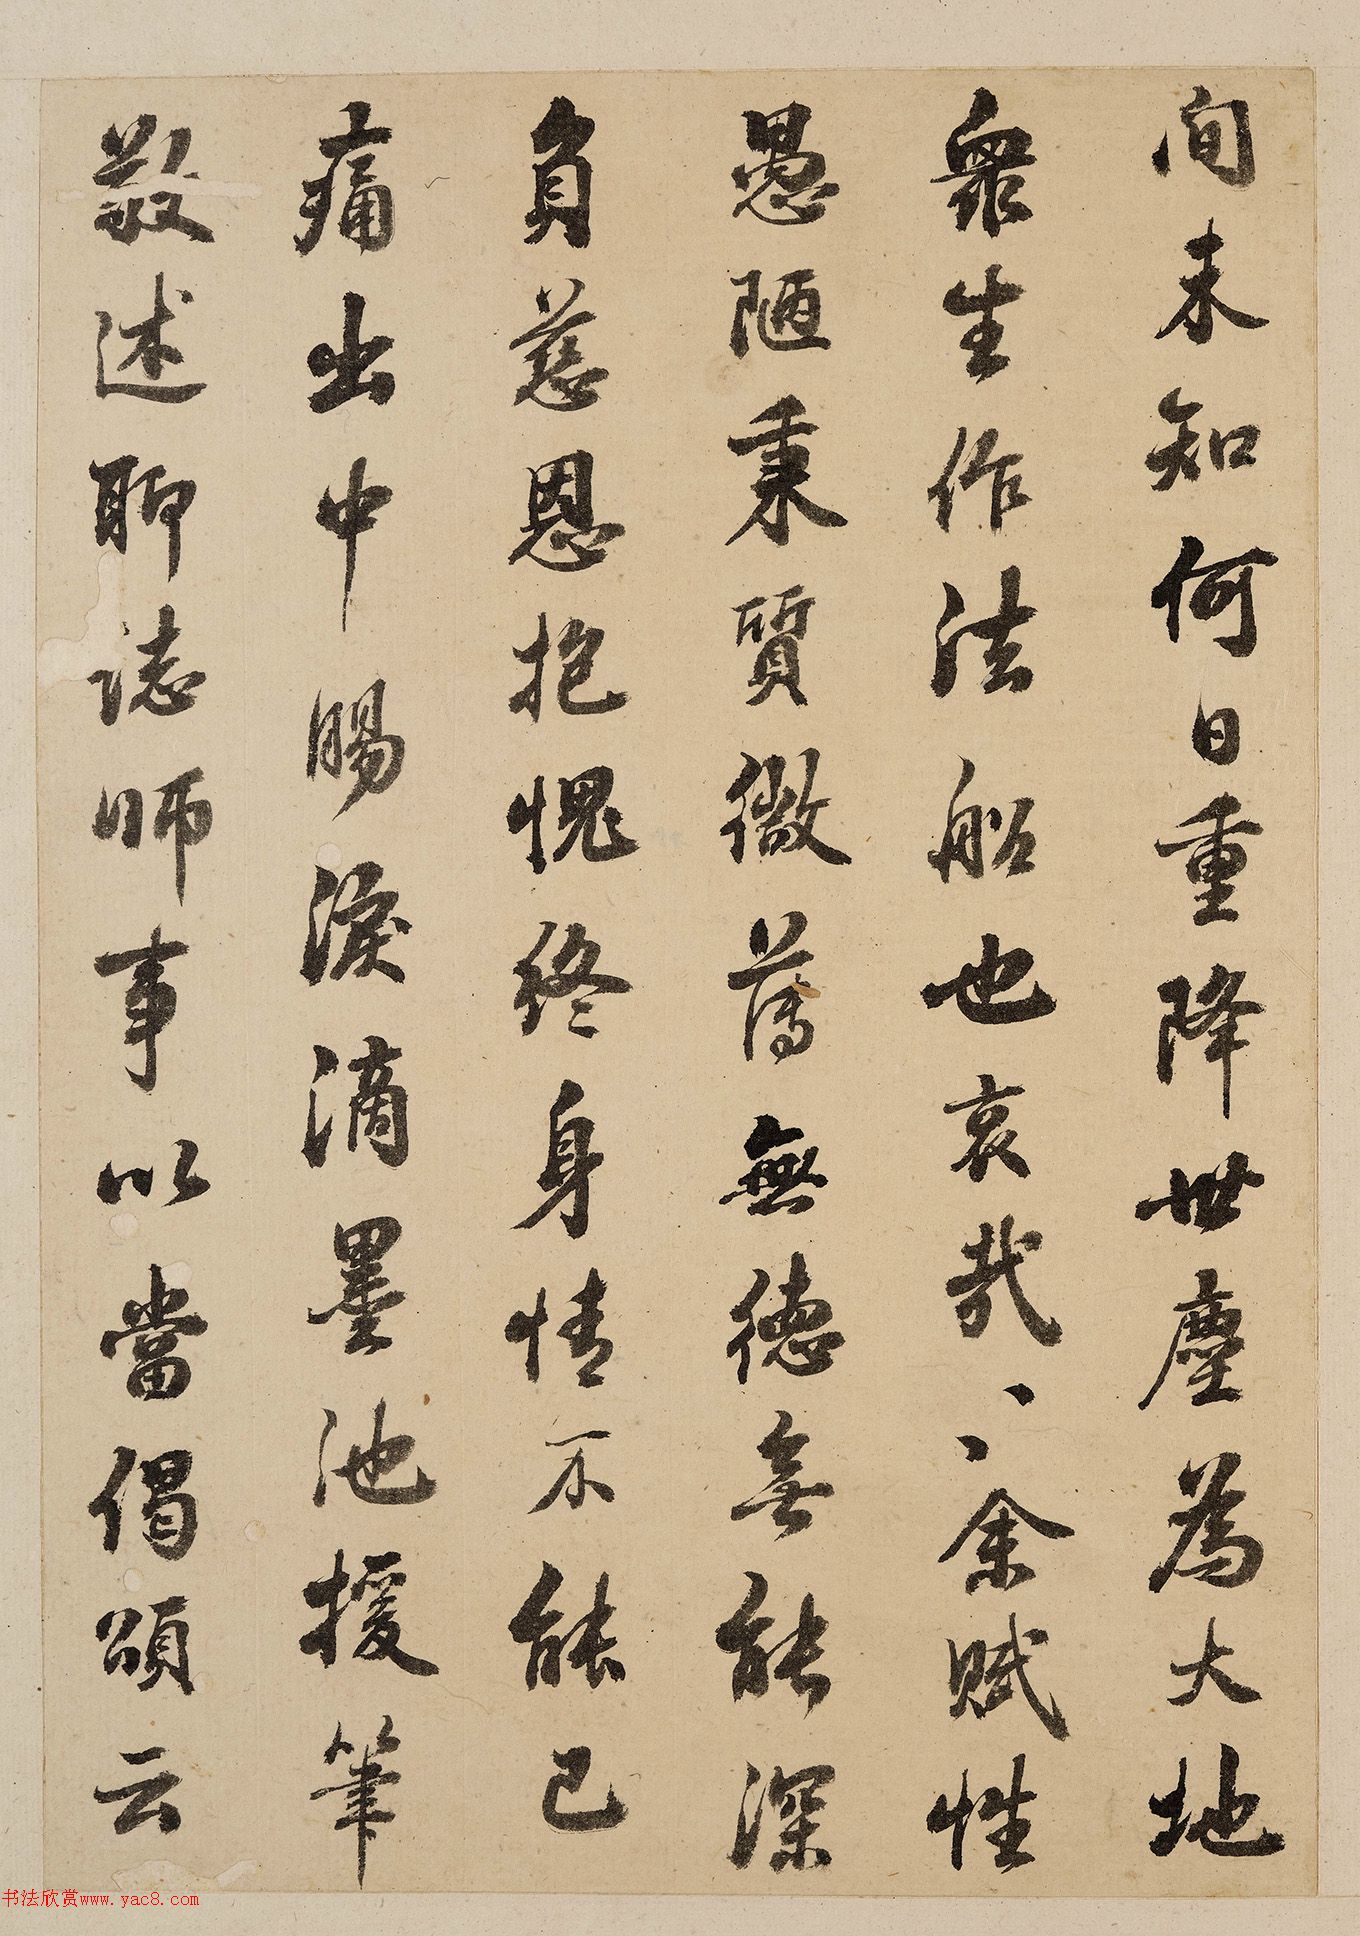 間未知何日重降世塵為大地
眾生作法船也哀哉〻余賦性
愚陋秉質微薄無德無能深
負慈恩抱愧終身情不能已
痛出中腸淚滴墨池援筆
敬述聊誌師事以當偈頌云
书法欣赏www.yac8.com